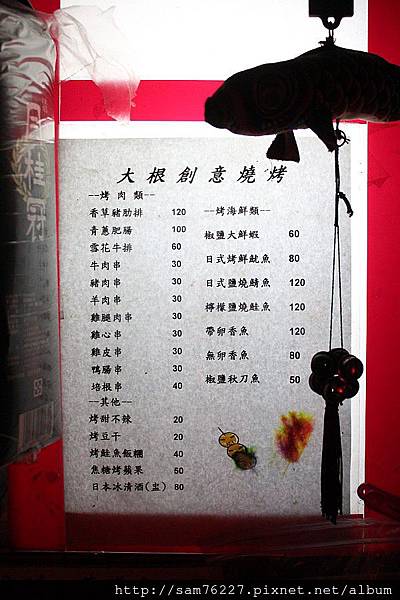 月桂冠
大根創意燒烤
--烤 肉 類--
香草豬肋排 120
青蔥肥腸 100
雪花牛排 60
牛肉串 30
豬肉串 30
羊肉串 30
雞腿肉串 30
雞心串 30
雞皮串 30
鴨腸串 30
培根串 40
--其他--
烤甜不辣 20
烤豆干 20
烤鮭魚飯糰 40
焦糖烤蘋果 50
日本冰清酒(盅) 80
--烤海鮮類--
椒鹽大鮮蝦 60
日式烤鮮魷魚 80
日式鹽燒鯖魚 120
檸檬鹽燒鮭魚 120
帶卵香魚 120
無卵香魚 80
椒鹽秋刀魚 50
http://sam76227.pixnet.net/album